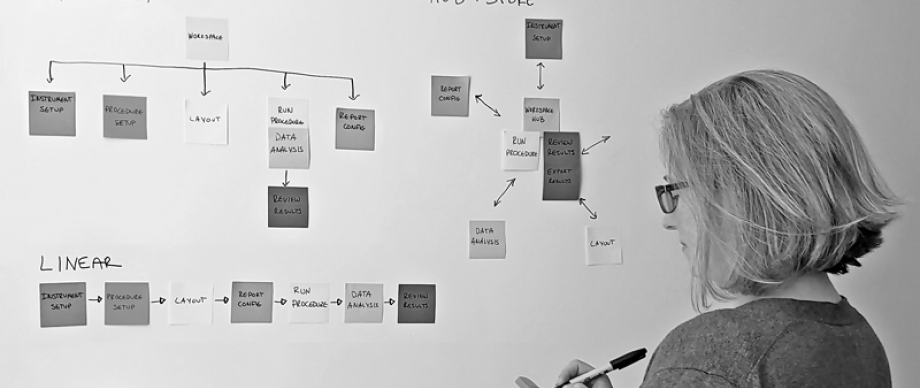 WORKSPACE
INSTRUMENT
SETUP
PROCEDURE
SETUP
LAYOUT
RUN
PROCEDURE
DATA
ANALYSIS
REPORT
CONFIG
REVIEW
RESULTS
INSTRUMENT
SETUP
REPORT
CONFIG
WORKSPACE
HUB
RUN
PROCEDURE
REVIEW
RESULTS
EXPORT
RESULTS
DATA
ANALYSIS
LAYOUT
LINEAR
INSTRUMENT
SETUP
PROCEDURE
SETUP
LAYOUT
REPORT
CONFIG
RUN
PROCEDURE
DATA
ANALYSIS
REVIEW
RESULTS